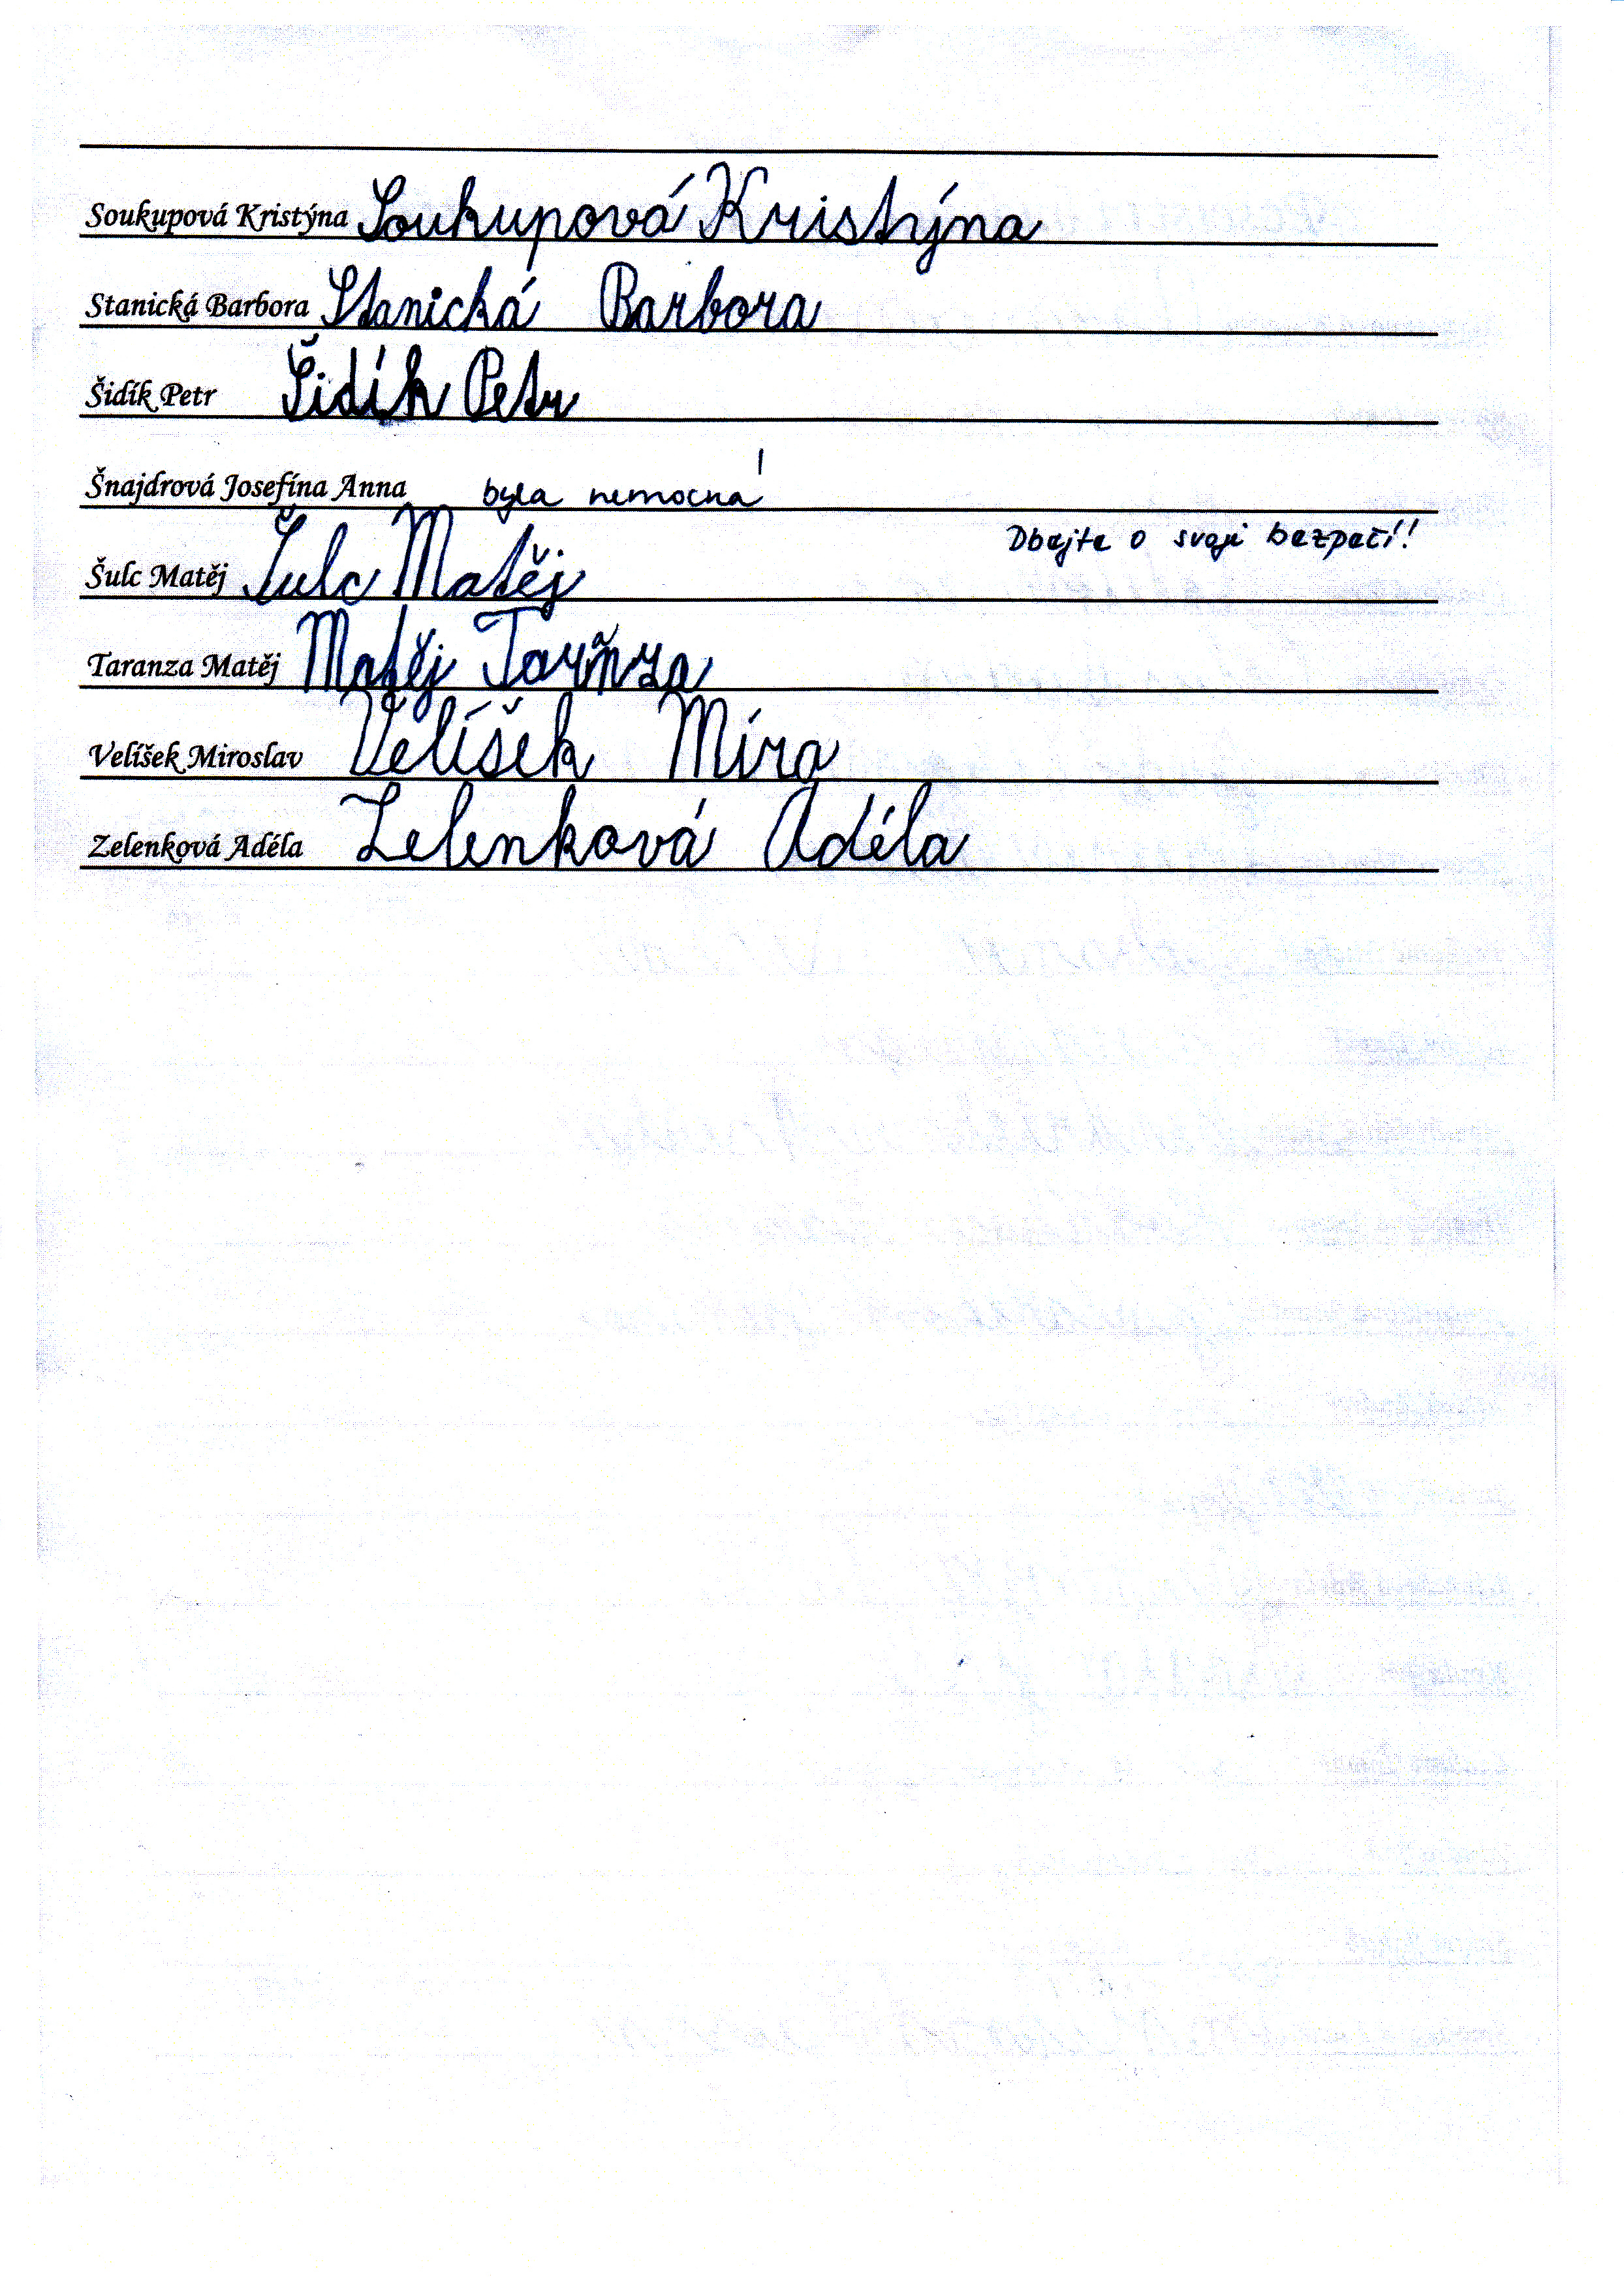 Soukupová Kristýna Soukupová Kristýna
Stanická Barbora Stanická Barbora
Šidík Petr Šidík Petr
Šnajdrová Josefína Anna byla nemocná!
Dbejte o svoji bezpečí!!
Šulc Matěj Šulc Matěj
Taranza Matěj Matěj Taranza
Velíšek Miroslav Velíšek Míra
Zelenková Adéla Zelenková Adéla